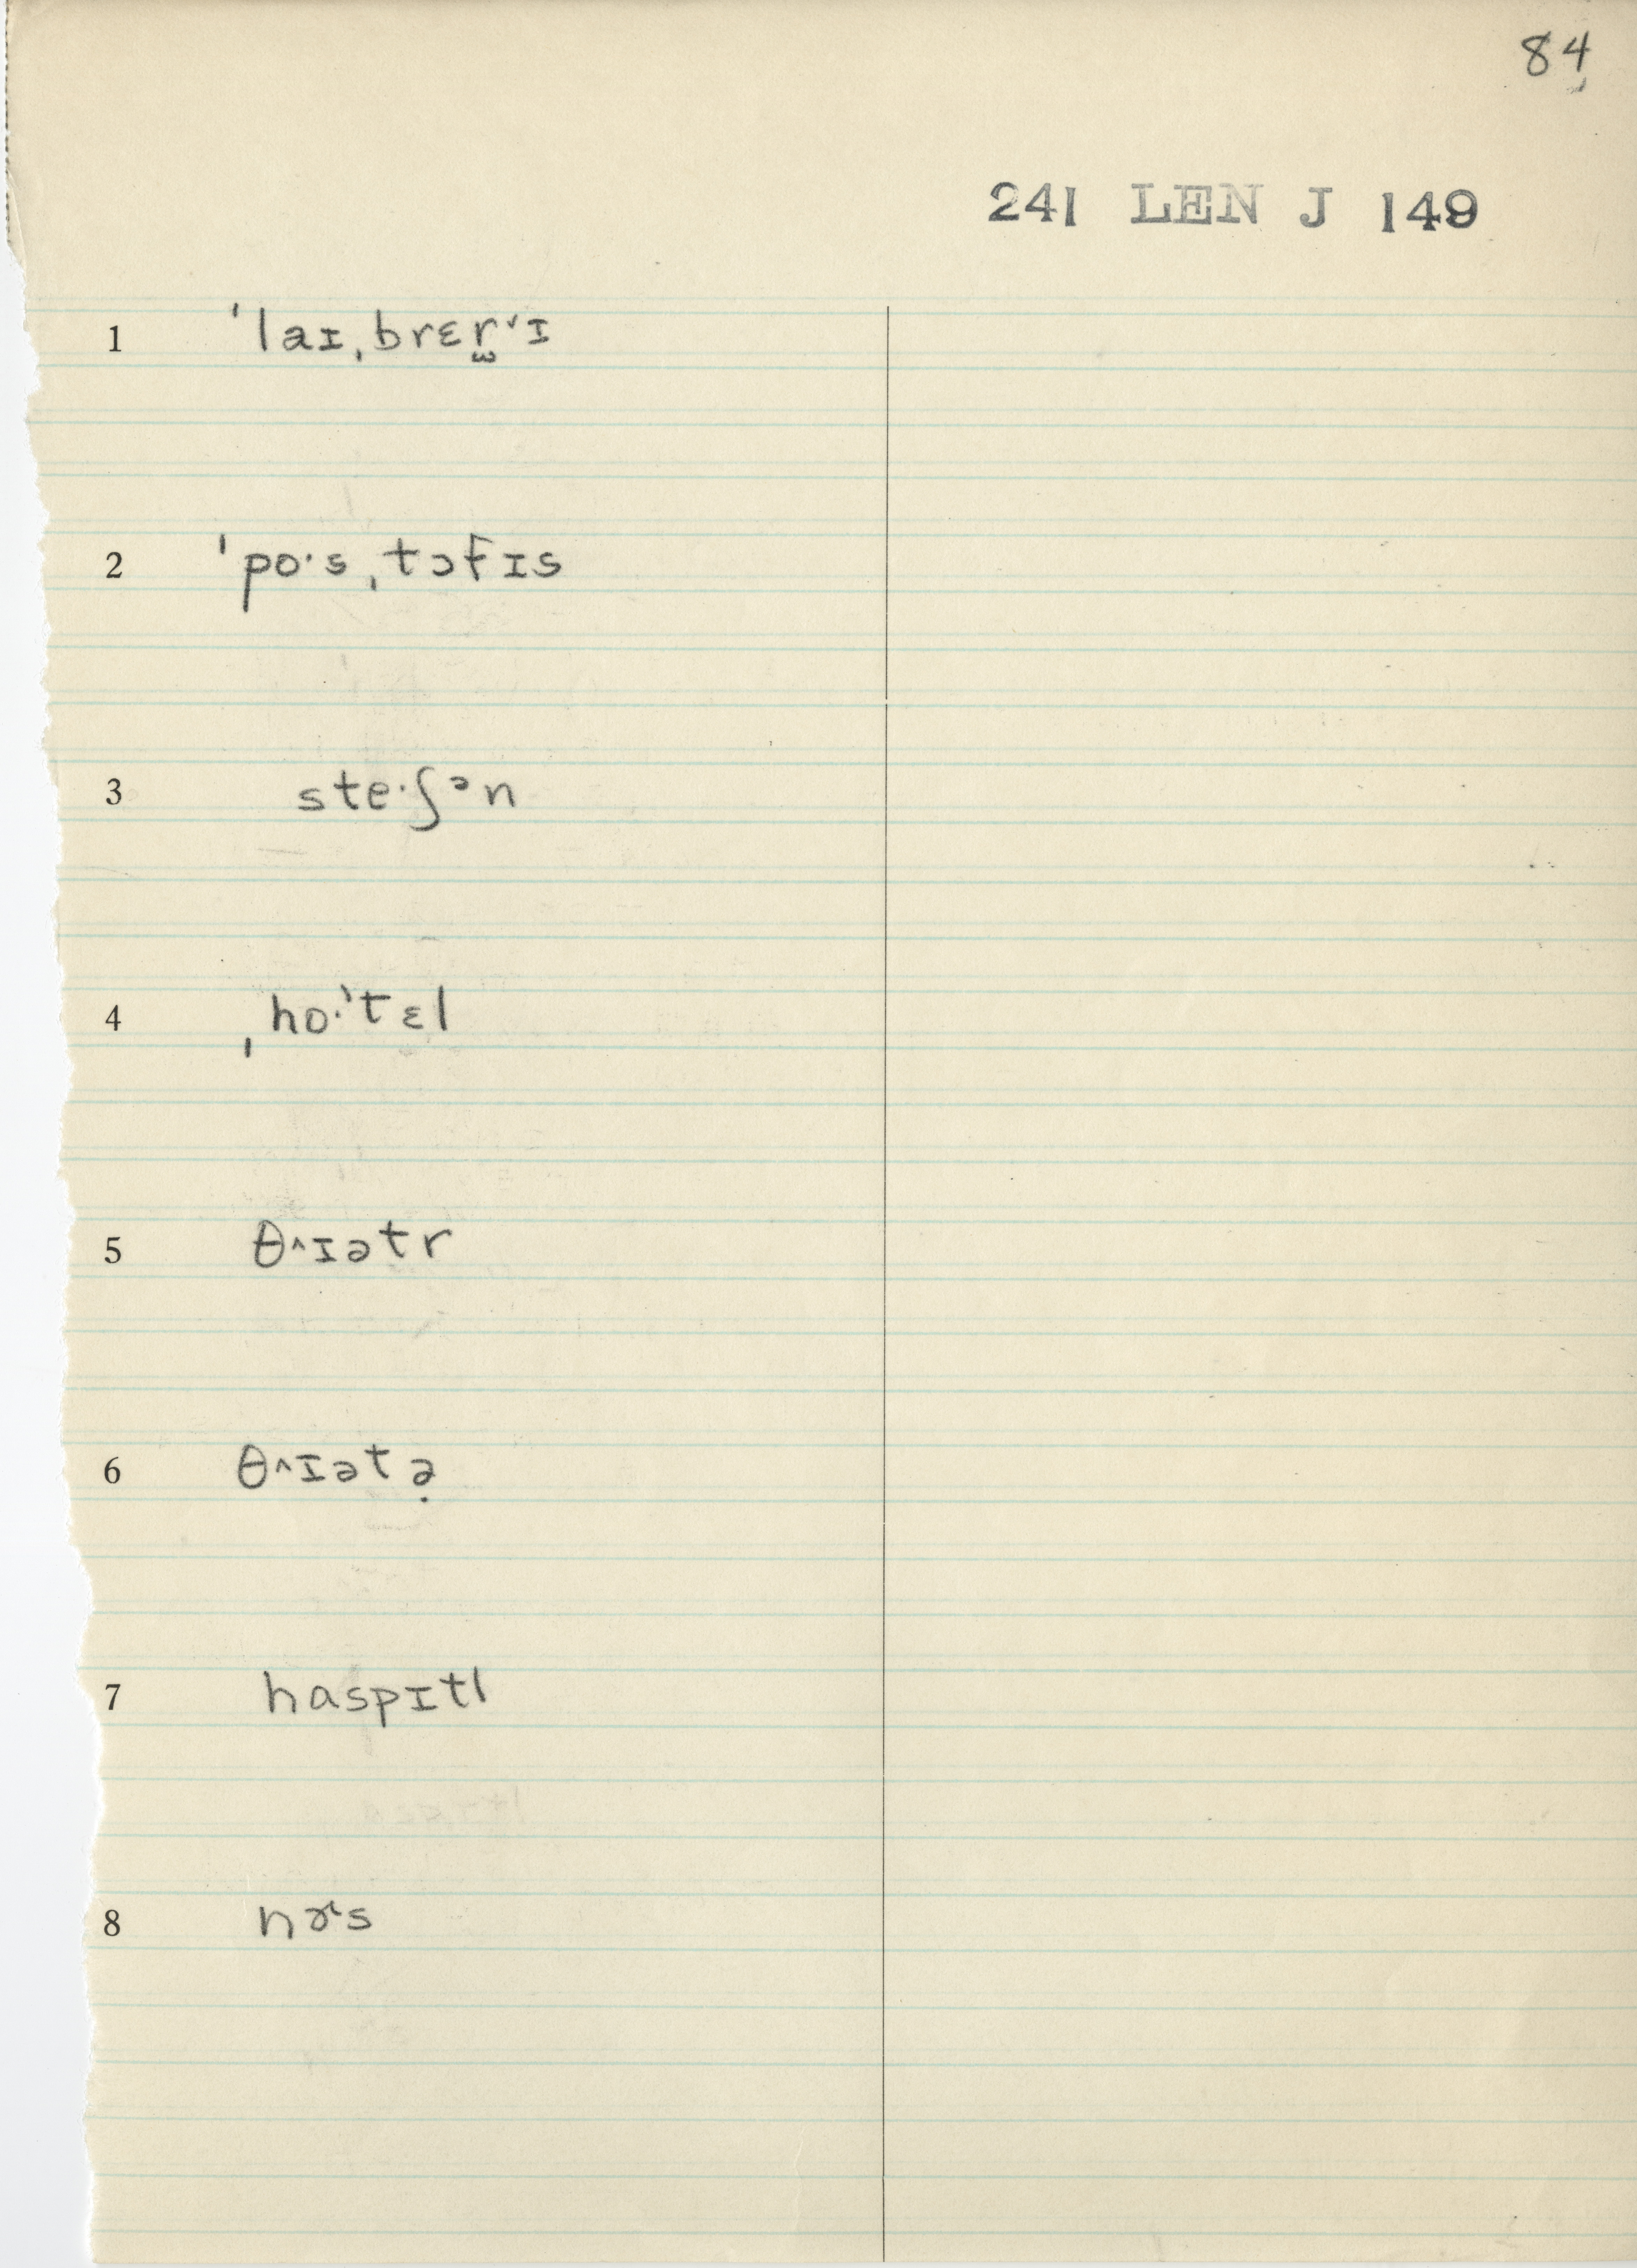 84
241 LEN J 149
1 ˈlaɪˌbrɛr̫˅ɪ
2 ˈpo·sˌtɔfɪs
3 ste·ʃᵊn
4 ˌho·ˈtɛl
5 θ˄ɪətr
6 θ˄ɪətə̣
7 haspɪtl
8 nɚs